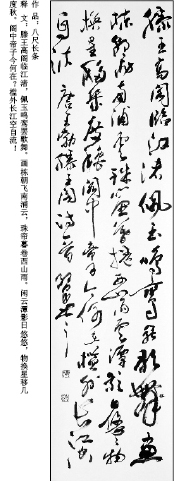 滕王高阁临江渚佩玉鸣鸾罢歌舞画
栋朝飞南浦云珠帘暮卷西山雨闲云潭影日悠悠物
换星移几度秋阁中帝子今何在槛外长江空
自流 唐王勃滕王阁诗一首
作 品：八尺长条
释 文：滕王高阁临江渚，佩玉鸣鸾罢歌舞。画栋朝飞南浦云，珠帘暮卷西山雨。闲云潭影日悠悠，物换星移几
度秋。阁中帝子今何在？槛外长江空自流！